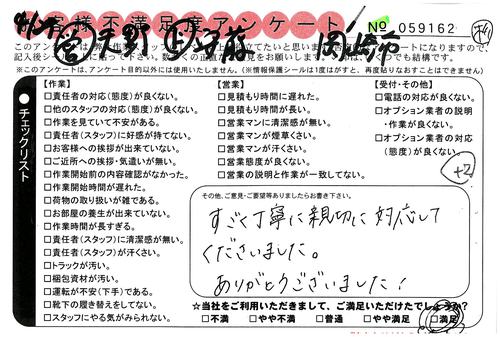 お客様不満足度アンケート
No 059162
岡崎市
※このアンケートは、アンケート目的以外には使用いたしません。(※情報保護シールは1度がすと、再度貼りなおすことはできません)
チェックリスト
【作業】
□責任者の対応(態度)が良くない。
□他のスタッフの対応(態度)が良くない。
□作業を見ていて不安がある。
□責任者(スタッフ)に好感が持てない。
□お客様への挨拶が出来ていない。
□ご近所への挨拶・気遣いが無い。
□作業開始前の内容確認がなかった。
□作業開始時間が遅れた。
□荷物の取り扱いが雑である。
□お部屋の養生が出来ていない。
□作業時間が長すぎる。
□責任者(スタッフ)に清潔感が無い。
□責任者(スタッフ)が汗くさい。
□トラックが汚い。
□梱包資材が汚い。
□運転が不安(下手)である。
□靴下の履き替えをしてない。
□スタッフにやる気がみられない。
【営業】
□見積もり時間に遅れた。
□見積もり時間が長い。
□営業マンに清潔感が無い。
□営業マンが煙草くさい。
□営業マンが汗くさい。
□営業態度が良くない。
□営業の説明と作業が一致してない。
【受付・その他】
□電話の対応が良くない。
□オプション業者の説明
・作業が良くない。
□オプション業者の対応
(態度)が良くない。
+2
その他、ご意見・ご要望等ありましたらお書き下さい。
すごく丁寧に親切に対応して
くださいました。
ありがとうございました!
☆当社をご利用いただきまして、ご満足いただけたでしょうか?
□不満 □やや不満 □普通 □やや満足 □満足